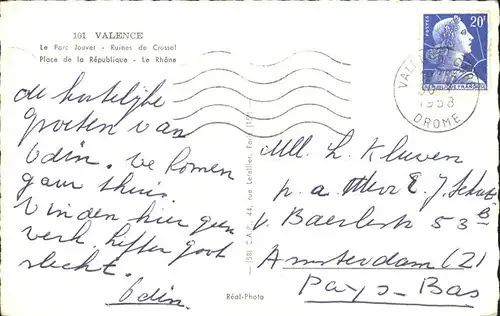 101 VALENCE
Le Parc Jouvet - Ruines de Crussol
Place de la République - Le Rhône
POSTES
20F
REPUBLIQUE FRANÇAISE
VALENCE
1958
DROME
de hartelijke
groeten van
Odin. We komen
gauw thuis.
Vinden hier geen
werk. liften gaat
slecht.
Odin.
(SR) C.A.P., 44, rue Letellier, Paris (15e)
Mll. L. Kluwen
p. a. Mevr E. J.
v. Baerlestr 53 B
Amsterdam (Z)
Pays-Bas
Réal-Photo